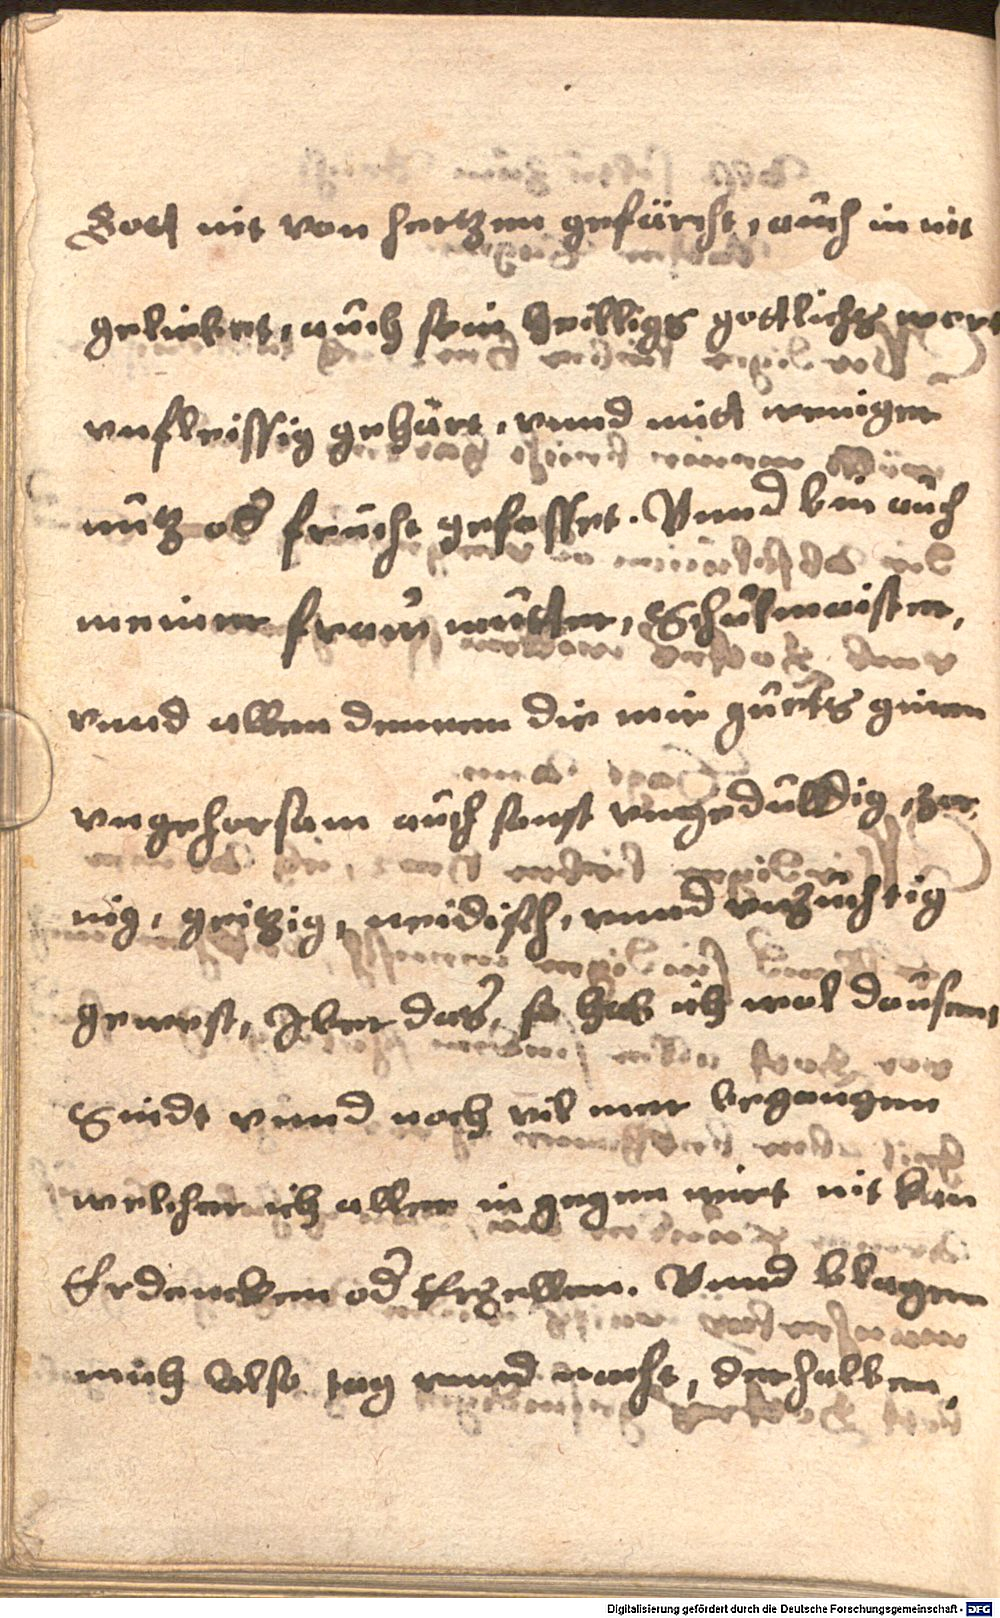 Gott nit von hertzen gefürcht, auch in nit
geliebet, auch sein heilligs gottlichs wort
unfleissig gehört, vnnd mitt weniger
nutz od frucht gefasset. Vnnd bin auch
meiner fraw mutter, Schulmaister,
vnnd allen dennen die mir guets günen
vngehorsam auch sonst vngedulldig, zor
nig, geitzig, neidisch, vnnd vnzuchtig
gewest, Iber das, so hab ich wol dausent
Sindt vnnd noch vil mer begangen
welcher ich aller in gegen wirt nit kan
Erdencken od Erzellen. Vnnd klagen
mich Also tag vnnd nacht, derhalben,
Digitalisierung gefördert durch die Deutsche Forschungsgemeinschaft - DFG